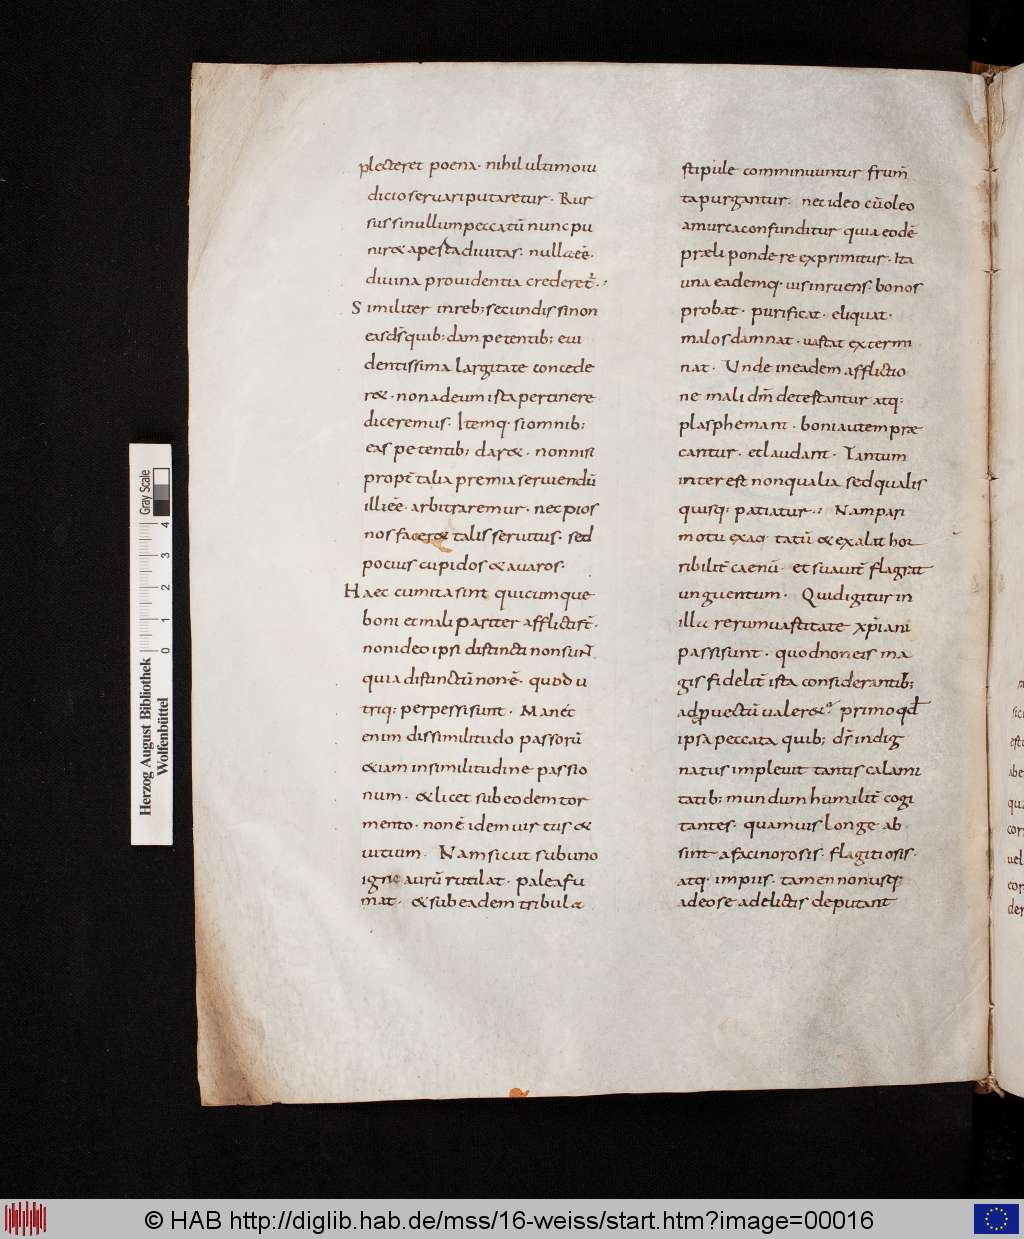 plecteret poena· nihil ultimoiu
dicio seruari putaretur· Rur
sus si nullum peccatū nunc pu
nir& aperta diuitas· nulla eē·
diuina prouidentia crederet᷑·,
Similiter in reb; secundis si non
eas dš quib; dam petentib; eui
dentissima largitate concede
r&· non ad eum ista pertinere
diceremus· Itemq· si omnib;
eas petentib; dar&· non nisi
propt̄ talia premia seruiendū
illi eē· arbitraremur· nec pios
nos facer& talis seruitus· sed
pocius cupidos & auaros·
Haec cum ita sint quicumque
boni et mali pariter afflicti st̄·
non ideo ipsi distincti non sunt
quia distinctū non ē· quod u
triq; perpessi sunt· Man&
enim dissimilitudo passorū
&iam in similitudine passio
num· & licet sub eodem tor
mento· non ē idem uir tus &
uitium· Nam sicut sub uno
igne aurū rutilat· palea fu
mat· & sub eadem tribula
stipule comminuuntur frum̄
ta purgantur· nec ideo cū oleo
amurca confunditur quia eodē
præli pondere exprimitur· Ita
una eademq· uis inruens· bonos
probat· purificat· eliquat·
malos damnat· uastat extermi
nat· Unde in eadem afflictio
ne mali dm̄ detestantur atq;
plasphemant· boni autem præ
cantur· et laudant· Tantum
interest non qualia sed qualis
quisq; patiatur·, Nam pari
motu exag tatū & exalat hor
ribilit̄ caenū· et suauit̄ flagrat
unguentum· Quid igitur in
illa rerum uastitate xp̄iani
passi sunt· quod non eis ma
gis fidelit̄ ista considerantib;
ad ꝓuectū ualer&· primo qđ
ipsa peccata quib; dš indig
natus impleuit tantis calami
tatib; mundum humilit̄ cogi
tantes· quamuis longe ab
sint a facinorosis· flagitiosis·
atq· impiis· tamen non usq;
adeo se a delictis deputant
Herzog August Bibliothek
Wolfenbüttel
0 1 2 3 4
Gray Scale
© HAB http://diglib.hab.de/mss/16-weiss/start.htm?image=00016